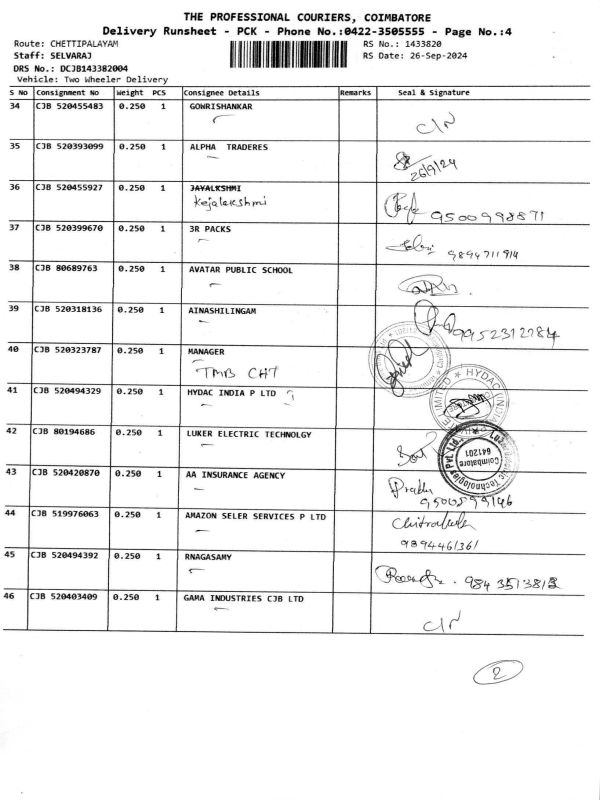 THE PROFESSIONAL COURIERS, COIMBATORE
Delivery Runsheet - PCK - Phone No.:0422-3505555 - Page No.:4
Route: CHETTIPALAYAM RS No.: 1433820
Staff: SELVARAJ RS Date: 26-Sep-2024
DRS No.: DCJB143382004
Vehicle: Two Wheeler Delivery
S No Consignment No Weight PCS Consignee Details Remarks Seal & Signature
34 CJB 520455483 0.250 1 GOWRISHANKAR
C/N
35 CJB 520393099 0.250 1 ALPHA TRADERES
26/9/24
36 CJB 520455927 0.250 1 JAYALKSHMI
Kejalakshmi
9500998871
37 CJB 520399670 0.250 1 3R PACKS
9894711914
38 CJB 80689763 0.250 1 AVATAR PUBLIC SCHOOL
39 CJB 520318136 0.250 1 AINASHILINGAM
9952312284
40 CJB 520323787 0.250 1 MANAGER
TMB CHT
41 CJB 520494329 0.250 1 HYDAC INDIA P LTD
LIMITED * HYDAC (INDIA
42 CJB 80194686 0.250 1 LUKER ELECTRIC TECHNOLGY
Luker Electric Technologies Pvt. Ltd.
Coimbatore
641201
43 CJB 520420870 0.250 1 AA INSURANCE AGENCY
Prabhu
9500599146
44 CJB 519976063 0.250 1 AMAZON SELER SERVICES P LTD
9894461361
45 CJB 520494392 0.250 1 RNAGASAMY
46 CJB 520403409 0.250 1 GAMA INDUSTRIES CJB LTD
C/N
2